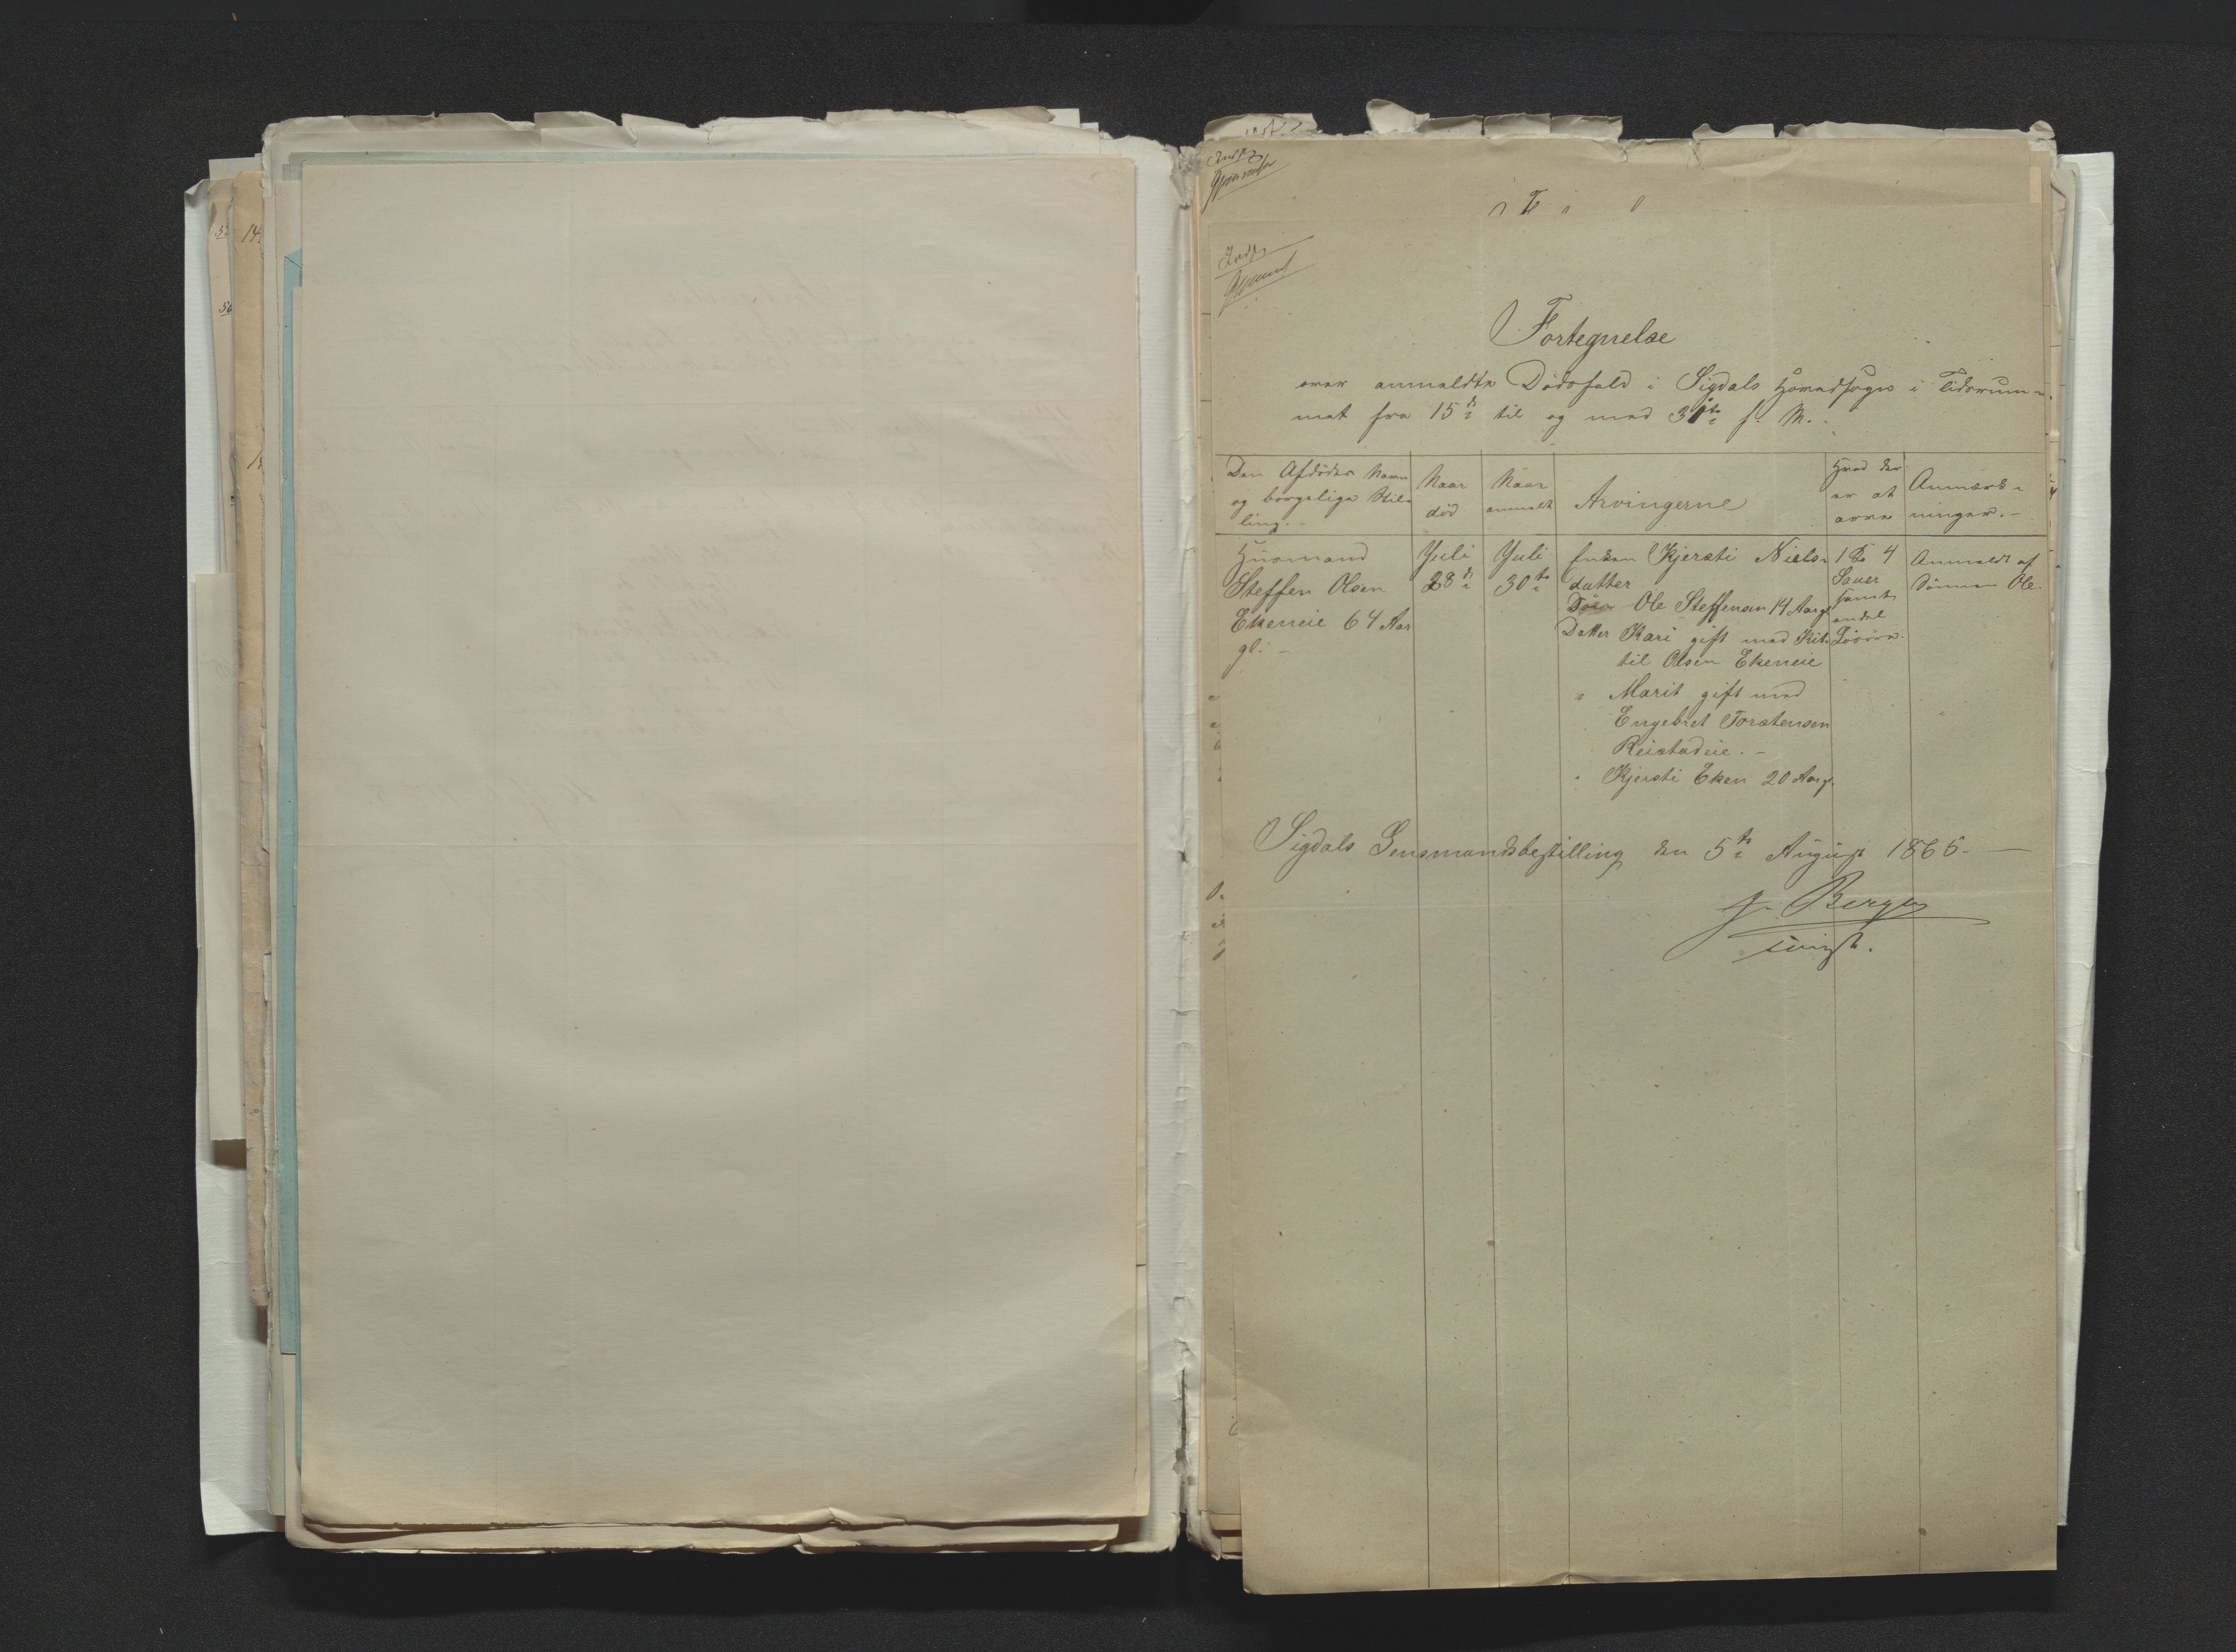 Fortegnelse
over anmeldte Dødsfald i Sigdals Hovedsogn i Tidsrum-
met fra 15de til og med 31te f. M.
Den Afdødes Navn
og borgelige Stil-
ling.
Naar
død
Naar
anmeldt
Arvingerne
Hvad der
er at
arve
Anmærk-
ninger.
Huusmand
Steffen Olsen
Ekeneie 64 Aar
gl.
Juli
28de
Juli
30te
Enken Kjersti Niels-
datter
Søn Ole Steffensen 14 Aar gl
Datter Kari gift med Kit-
til Olsen Ekeneie
" Marit gift med
Engebret Torstensen
Reistadeie.
" Kjersti Eken 20 Aar gl.
1 Ko 4
Sauer
samt
endel
Løsøre.
Anmeldt af
Sønnen Ole.
Sigdals Lensmandsbestilling den 5te August 1865
J. Berg